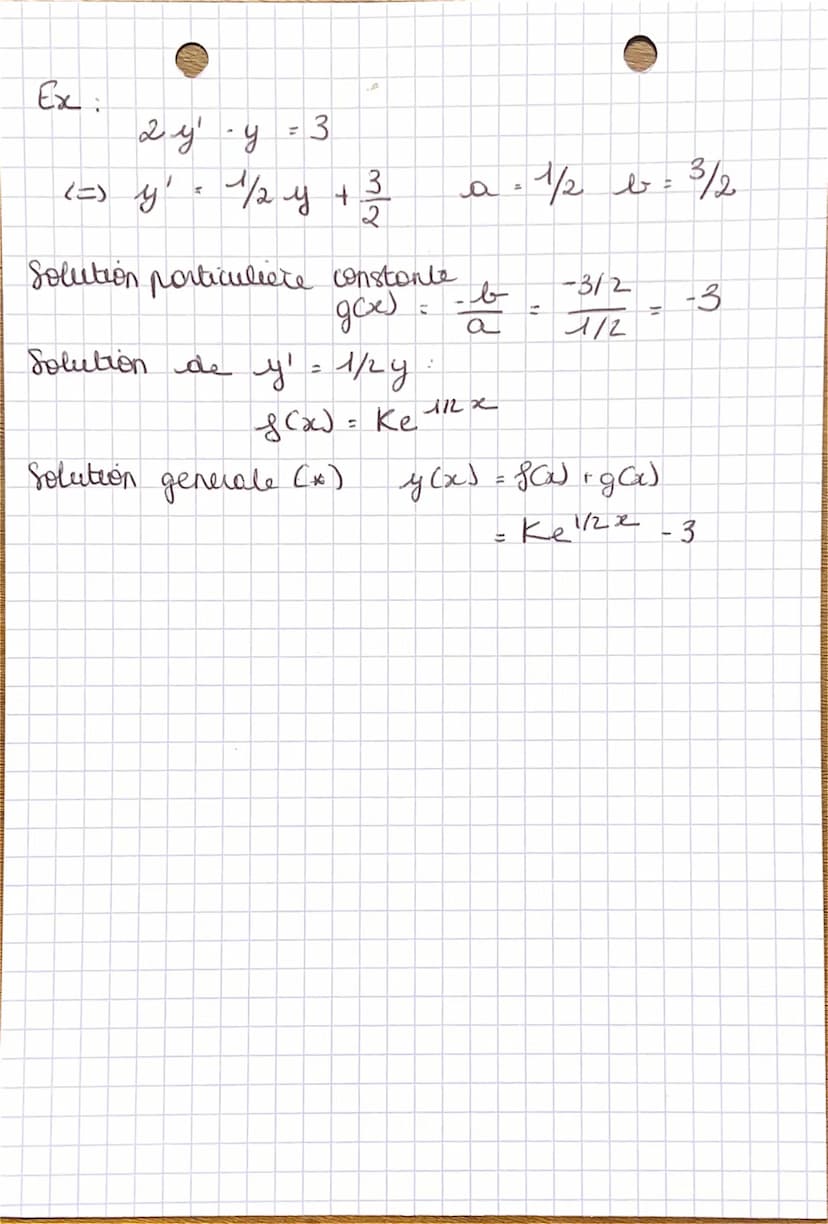 Ex :
2y' - y = 3
(=) y' = 1/2 y + 3/2 a = 1/2 b = 3/2
Solution particulière constante
g(x) = -b/a = -3/2 / 1/2 = -3
Solution de y' = 1/2 y :
f(x) = Ke^1/2 x
Solution generale (*) y(x) = f(x) + g(x)
= Ke^1/2 x - 3